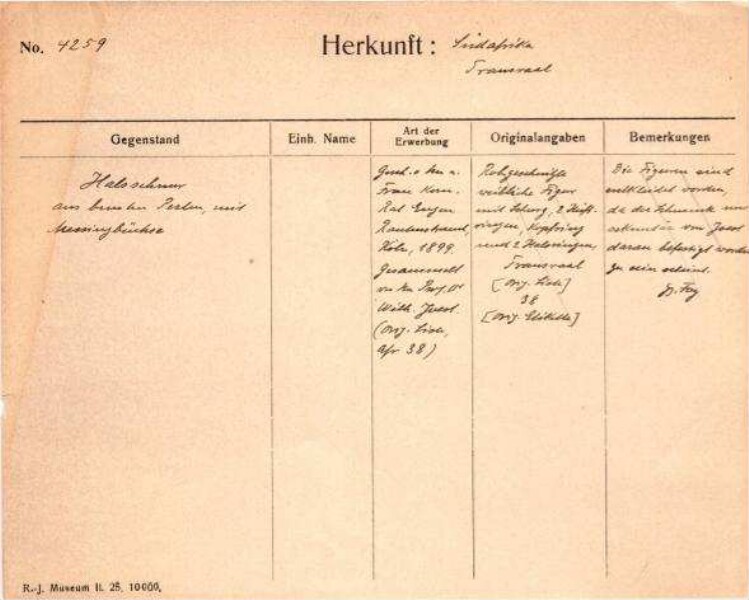 No. 4259
Herkunft: Südafrika
Transvaal
Gegenstand
Einh. Name
Art der Erwerbung
Originalangaben
Bemerkungen
Halsschnur
aus bunten Perlen, mit
Messingbüchse
Gesch. v. Hn u.
Frau Kom.
Rat Eugen
Rautenstrauch,
Köln, 1899.
Gesammelt
von Hn Prof. Dr
Wilh. Joest.
(Orig. Liste,
Afr 38)
Rohgeschnitzte
weibliche Figur
mit Schurz, 2 Hüft-
ringen, Kopfring
und 2 Halsringen,
Transvaal
[Orig. Liste]
38
[Orig. Etikette]
Die Figuren sind
entkleidet worden,
da der Schmuck
von Joest
daran befestigt worden
zu sein scheint.
Foy
R.-J. Museum II. 25. 10000.